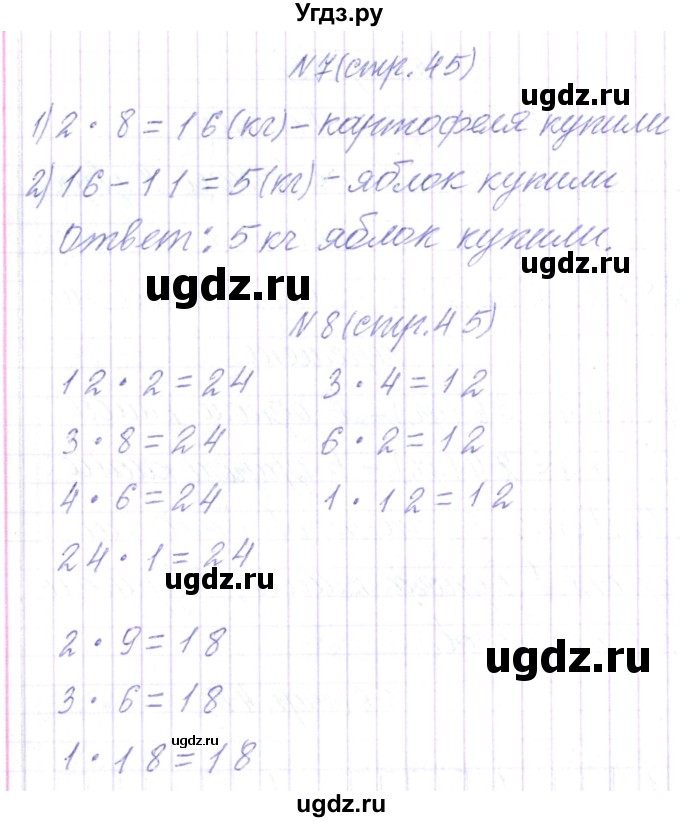 Угдз.ру
N7(стр.45)
ugdz.ru
1) 2 · 8 = 16(кг) - картофеля купили
2) 16 - 11 = 5(кг) - яблок купили
Ответ: 5 кг яблок купили.
ugdz.ru
ugdz.ru
N8(стр.45)
12 · 2 = 24 3 · 4 = 12
3 · 8 = 24 6 · 2 = 12
4 · 6 = 24 1 · 12 = 12
24 · 1 = 24
ugdz.ru
2 · 9 = 18
ugdz.ru
3 · 6 = 18
ugdz.ru
1 · 18 = 18
ugdz.ru